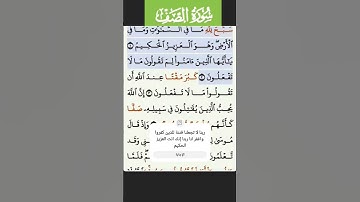 سُورَةُ الصَّفِّ
سَبَّحَ لِلَّهِ مَا فِي السَّمَٰوَٰتِ وَمَا فِي
الْأَرْضِ وَهُوَ الْعَزِيزُ الْحَكِيمُ ١
يَٰٓأَيُّهَا الَّذِينَ ءَامَنُوا لِمَ تَقُولُونَ مَا لَا
تَفْعَلُونَ ٢ كَبُرَ مَقْتًا عِندَ اللَّهِ أَن
تَقُولُوا مَا لَا تَفْعَلُونَ ٣ إِنَّ اللَّهَ
يُحِبُّ الَّذِينَ يُقَٰتِلُونَ فِي سَبِيلِهِ صَفًّا
كَأَنَّهُم
وَإِذْ قَالَ
مُوسَىٰ
ربنا لا تجعلنا فتنة للذين كفروا
واغفر لنا ربنا إنك أنت العزيز
الحكيم
فَلَمَّا